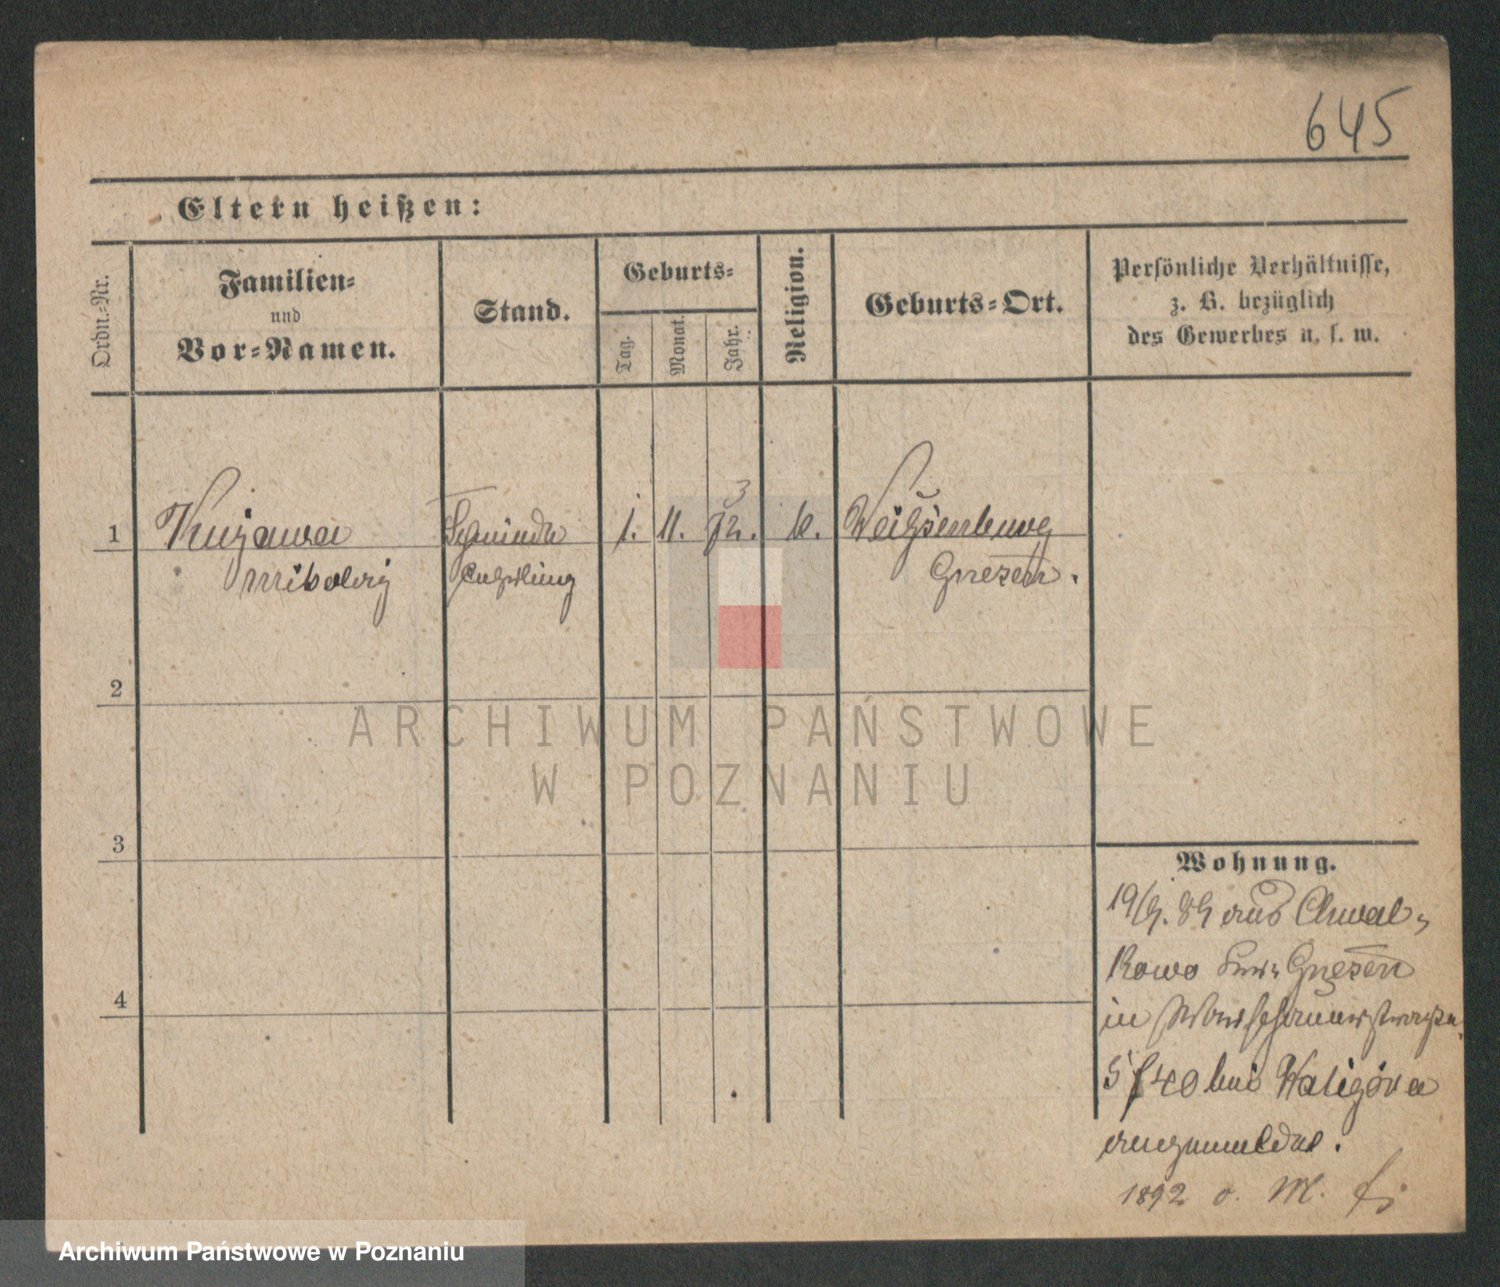 645
Eltern heißen:
Ordn.-Nr.
Familien-
und
Vor-Namen.
Stand.
Geburts-
Tag.
Monat.
Jahr.
Religion.
Geburts-Ort.
Persönliche Verhältnisse,
z. B. bezüglich
des Gewerbes u. s. w.
1 Kujawa 1. 11. 72. 3 k. Weißenburg
Gnesen.
2
3
4
Wohnung.
19/9. 89 aus Chwal-
kowo Gnesen
in Warschauerstraße
5/40 bei Waligóra
angemeldet.
1892 o. M.
ARCHIWUM PAŃSTWOWE
W POZNANIU
Archiwum Państwowe w Poznaniu